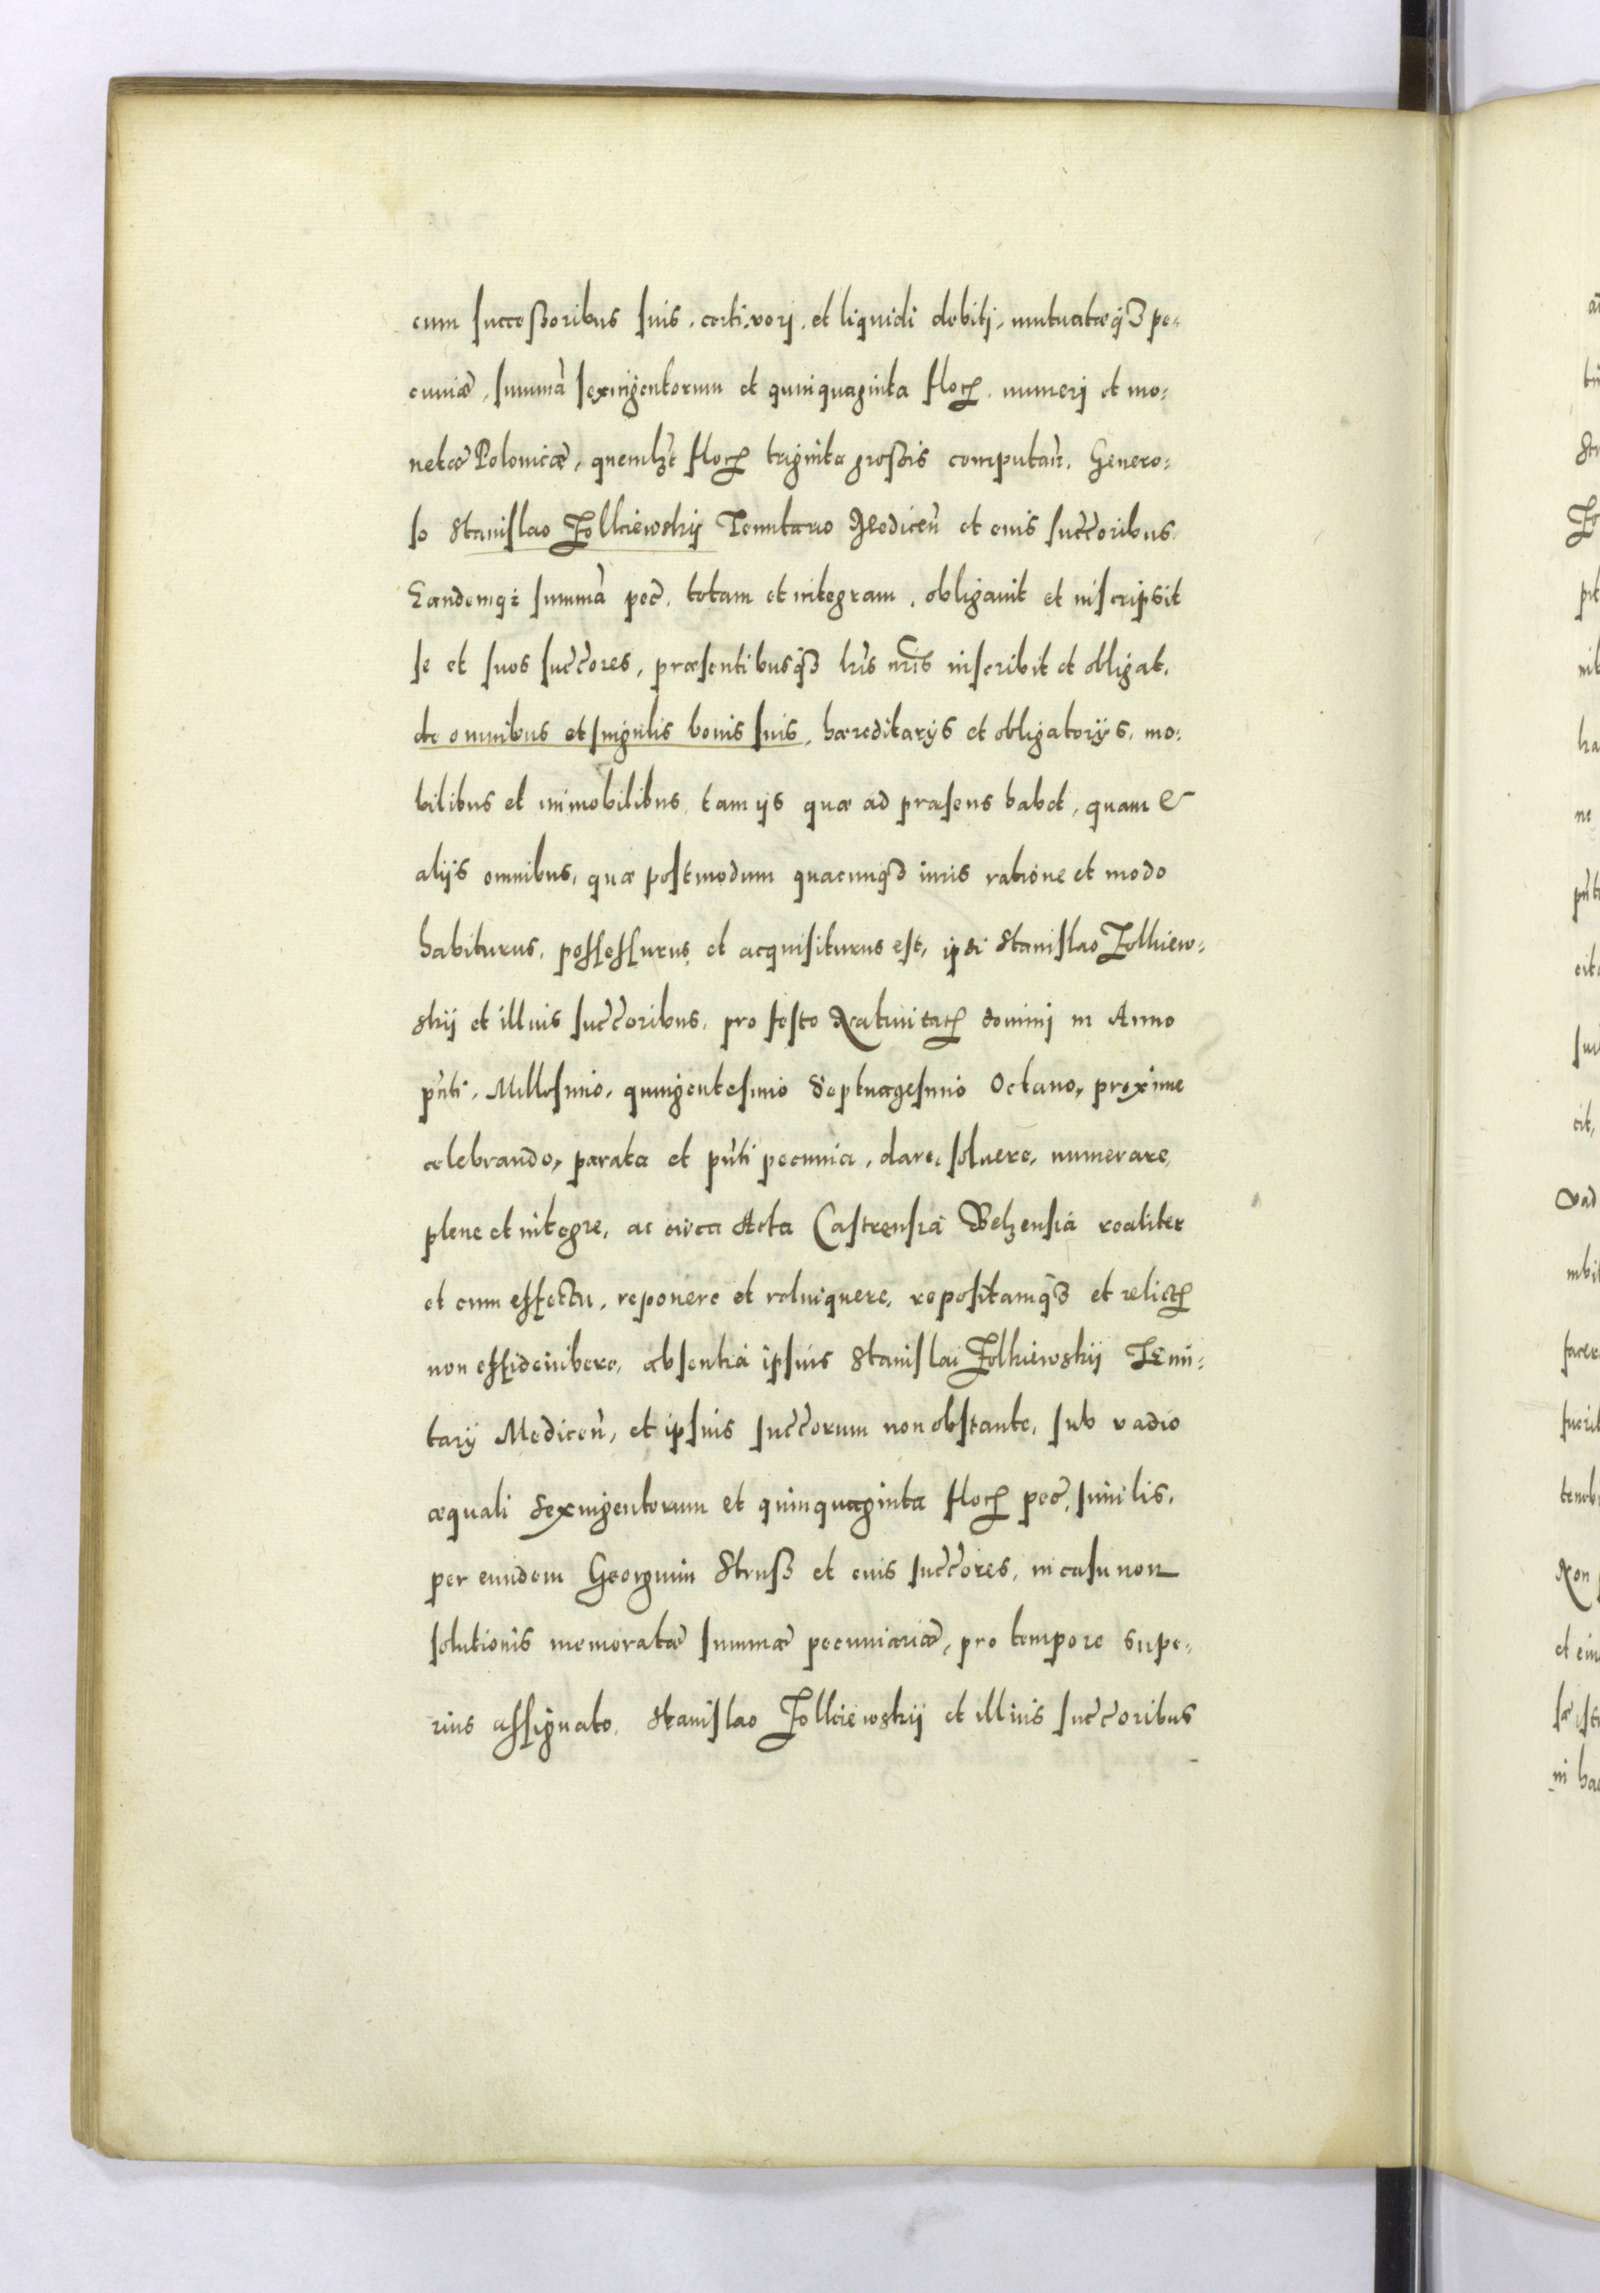 cum succeßoribus suis, certi, verj, et liquidi debitj, mutuatæq₃ pe-
cuniæ, summã sexingentorum et quinquaginta floꝝ, numerj et mo-
netæ Polonicæ, quemlꝫt floꝝ triginta großis computañ, Genero-
so Stanislao Zolkiewskij Tenutario Mediceñ et euis succ̃oribus,
Eandemq₃ summã pec̃, totam et integram, obligauit et inscripsit
se et suos succ̃ores, præsentibusq₃ lr̃is nr̃is inscribit et obligat,
de omnibus et singulis bonis suis, hæreditarijs et obligatorijs, mo-
bilibus et immobilibus, tam ijs quæ ad præsens habet, quam &
alijs omnibus, quæ postmodum quacunq₃ iuris ratione et modo
habiturus, possessurus, et acquisiturus est, ip̃i Stanislao Zolkiew-
skij et illius succ̃oribus, pro festo Natiuitatꝭ dominj in Anno
pñti, Millesimo, quingentesimo Septuagesimo Octauo, proxime
celebrando, parata et pñti pecunia, dare, soluere, numerare,
plene et integre, ac circa Acta Castrensia Belzensia realiter
et cum effectu, reponere et relinquere, repositamq₃ et relictꝭ
non effidemibere, absentia ipsius Stanislai Zolkiewskij Tenu-
tarij Mediceñ, et ipsius succ̃orum non obstante, sub vadio
æquali Sexingentorum et quinquaginta floꝝ pec̃, similis,
per eundem Georgium Struß et euis succ̃ores, in casu non
solutionis memoratæ summæ pecuniariæ, pro tempore supe-
rius assignato, Stanislao Zolkiewskij et illius succ̃oribus